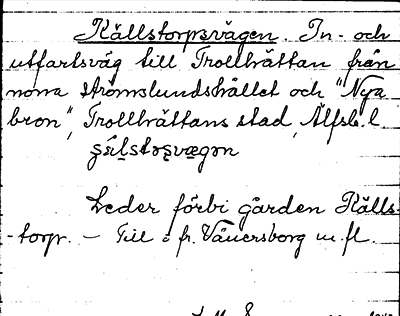 Källstorpsvägen. In- och
utfartsväg till Trollhättan från
norra Strömslundshållet och "Nya
bron", Trollhättans stad, Älfsb. l
Leder förbi gården Källs-
-torp. – Till o fr. Vänersborg m. fl.